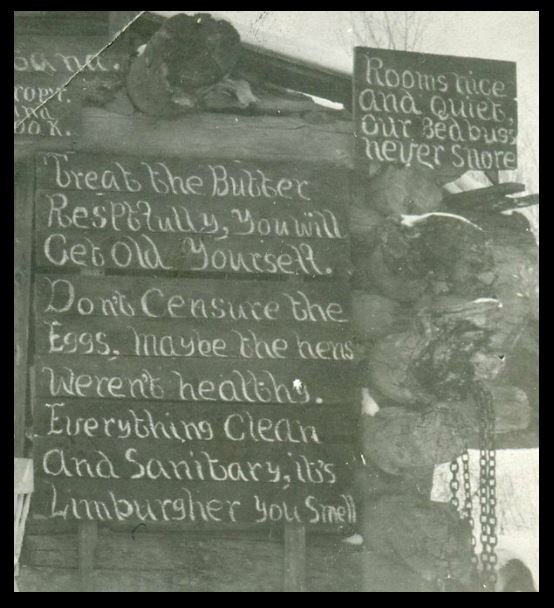 sana.
ropr.
and
ook.
Rooms nice
and quiet,
our Bed bugs
never Snore
Treat the Butter
Resptfully, you will
Get Old Yourself.
Don't Censure the
Eggs, maybe the hens
weren't healthy.
Everything Clean
and Sanitary, it's
Limburgher you Smell